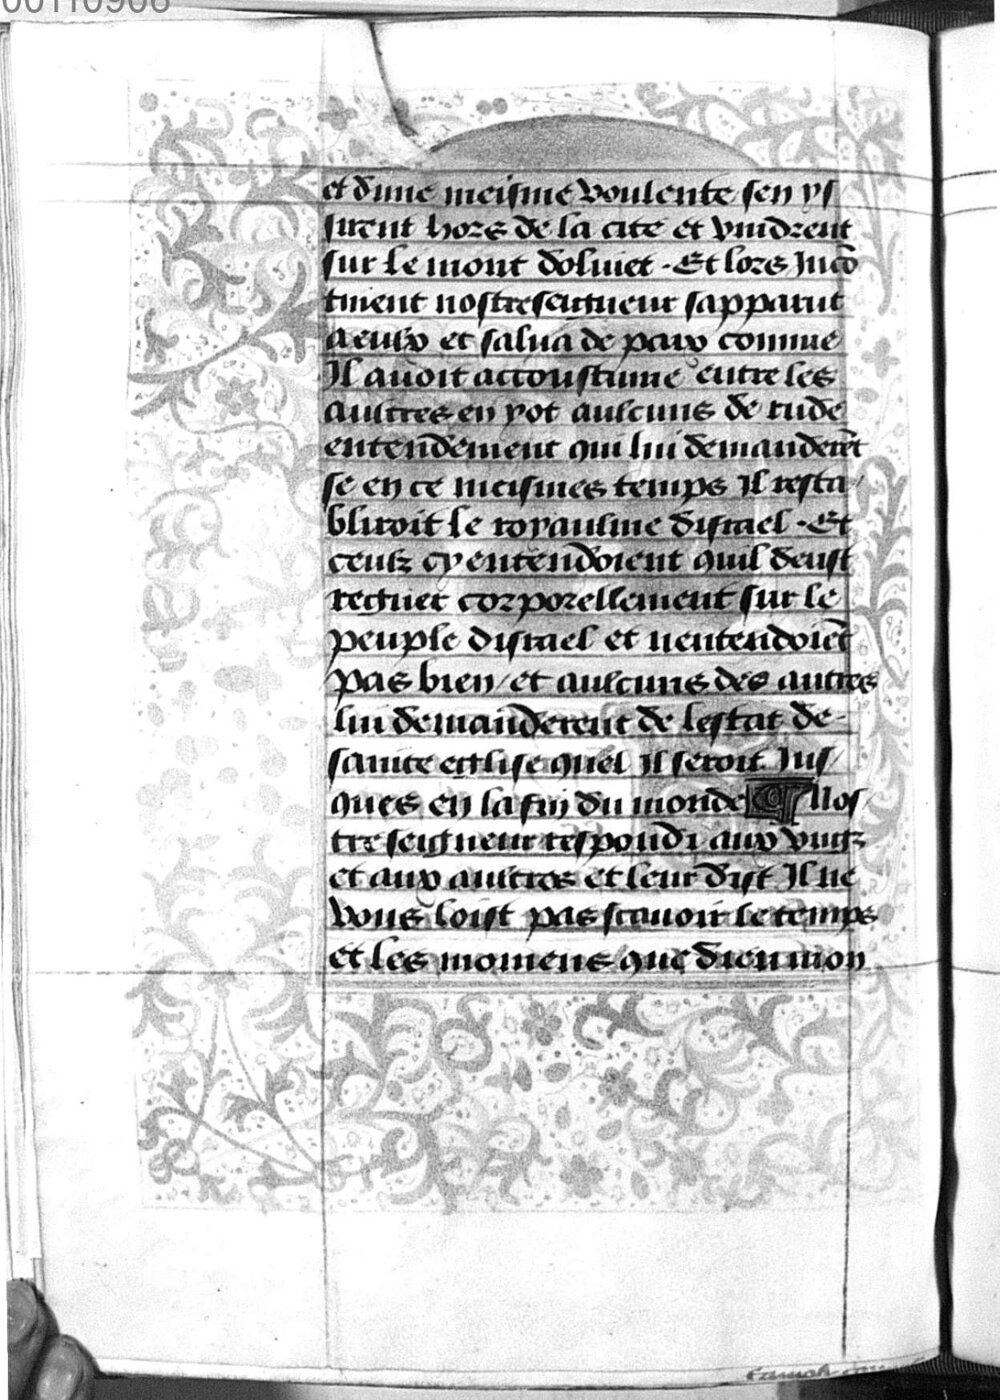 00110908
et dune meisme voulente sen ys
sirent hors de la cite et vindrent
sur le mont doliuet . Et lors Incō
tinent nostreseigneur sapparut
a eulx et salua de paix comme
Il auoit accoustume entre les
aultres en yot aulcuns de rude
entendement qui lui demanderēt
se en ce meismes temps Il resta
bliroit le royaulme disrael . Et
ceulz cy entendoient quil deust
regner corporellement sur le
peuple disrael et nentendoiēt
pas bien / et aulcuns des autres
lui demanderent de lestat de
saincte eglise quel Il seroit Jus
ques en la fin du monde ¶ Nos
tre seigneur respondi aux vngz
et aux aultres et leur dist Il ne
vous loist pas scauoir le temps
et les momens que dieu mon